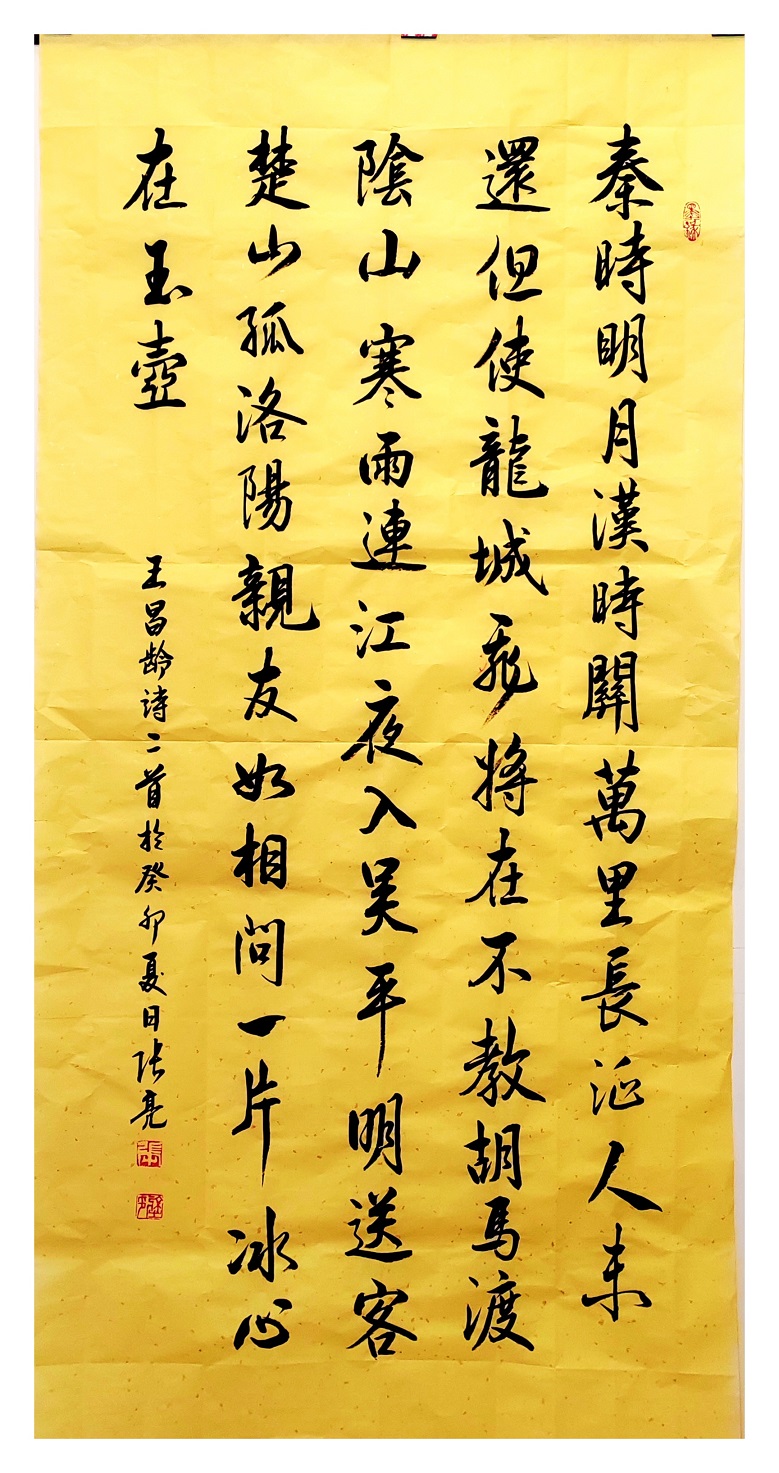 秦時明月漢時關萬里長征人未
還但使龍城飛將在不教胡馬渡
陰山寒雨連江夜入吳平明送客
楚山孤洛陽親友如相問一片冰心
在玉壺
王昌龄诗二首於癸卯夏日张亮